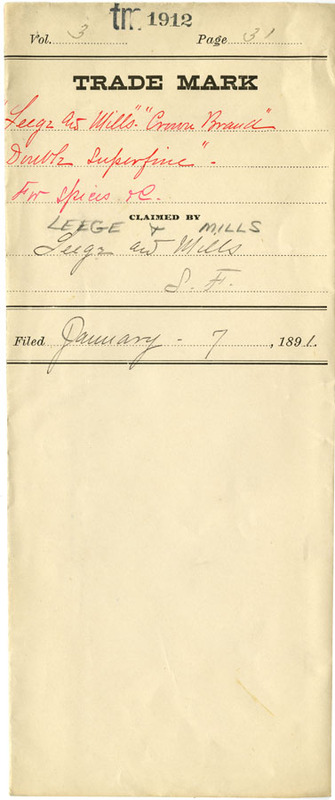 tm 1912
Vol. 3 Page 31
TRADE MARK
"Leege and Mills" "Crown Brand"
Double Superfine" -
For spices &C.
CLAIMED BY
LEEGE & MILLS
Leege and Mills
S. F.
Filed January - 7, 1891.